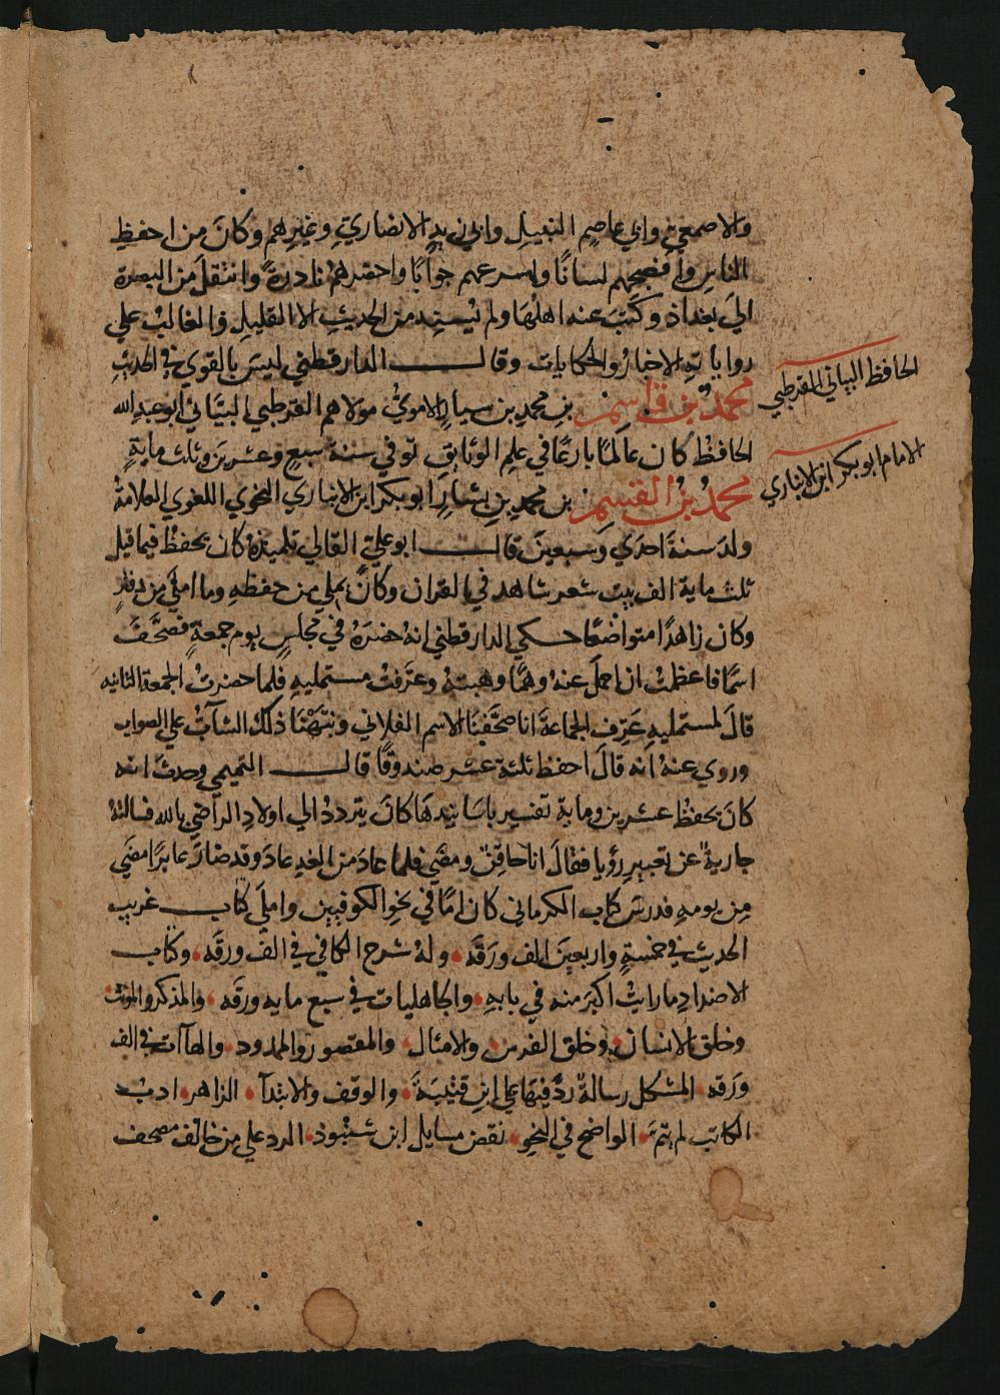 والاصمعي وابي عاصم النبيل وابي زيد الانصاري وغيرهم وكان من احفظ
الناس وافصحهم لسانا واسرعهم جوابا واحضرهم نادرة وانتقل من البصرة
الي بغداذ وكتب عنه اهلها ولم يسند من الحديث الا القليل والغالب علي
رواياته الاخبار والحكايات وقال الدارقطني ليس بالقوي في الحديث
الحافظ البياني القرطبي
محمد بن قاسم بن محمد بن سيار الاموي مولاهم القرطبي البياني ابو عبد الله
الحافظ كان عالما بارعا في علم الوثايق توفي سنة سبع وعشرين وثلث ماية
الامام ابو بكر ابن الانباري
محمد بن القسم بن محمد بن بشار ابو بكر ابن الانباري النحوي اللغوي العلامة
ولد سنة احدي وسبعين قال ابو علي القالي تلميذه كان يحفظ فيما قيل
ثلث ماية الف بيت شعر شاهد في القران وكان يملي من حفظه وما املي من دفتر
وكان زاهدا متواضعا حكي الدارقطني انه حضره في مجلس يوم جمعة فصحف
اسما فاعظمت ان احمل عنه وهما وهبته وعرفت مستمليه فلما حضرت الجمعة الثانيه
قال لمستمليه عرف الجماعة انا صحفنا الاسم الفلاني ونبهنا ذلك الشاب علي الصواب
وروي عنه انه قال احفظ ثلثة عشر صندوقا قال التميمي وحدث انه
كان يحفظ عشرين وماية تفسير باسانيدها كان يتردد الي اولاد الراضي بالله فسالته
جارية عن تعبير رؤيا فقال انا حاقن ومضي فلما عاد من الغد عاد وقد صار عابرا مضي
من يومه فدرس كتاب الكرماني كان اماما في نحو الكوفيين واملي كتاب غريب
الحديث في خمسة واربعين الف ورقة وله شرح الكافي في الف ورقه وكتاب
الاضداد ما رايت اكبر منه في بابه والجاهليات في سبع مايه ورقه والمذكر والمونث
وخلق الانسان وخلق الفرس والامثال والمقصور والممدود والهاآت في الف
ورقه المشكل رسالة رد فيها علي ابن قتيبة والوقف والابتدآ الزاهر ادب
الكاتب لم يتم الواضح في النحو نقض مسايل ابن شنبوذ الرد علي من خالف مصحف